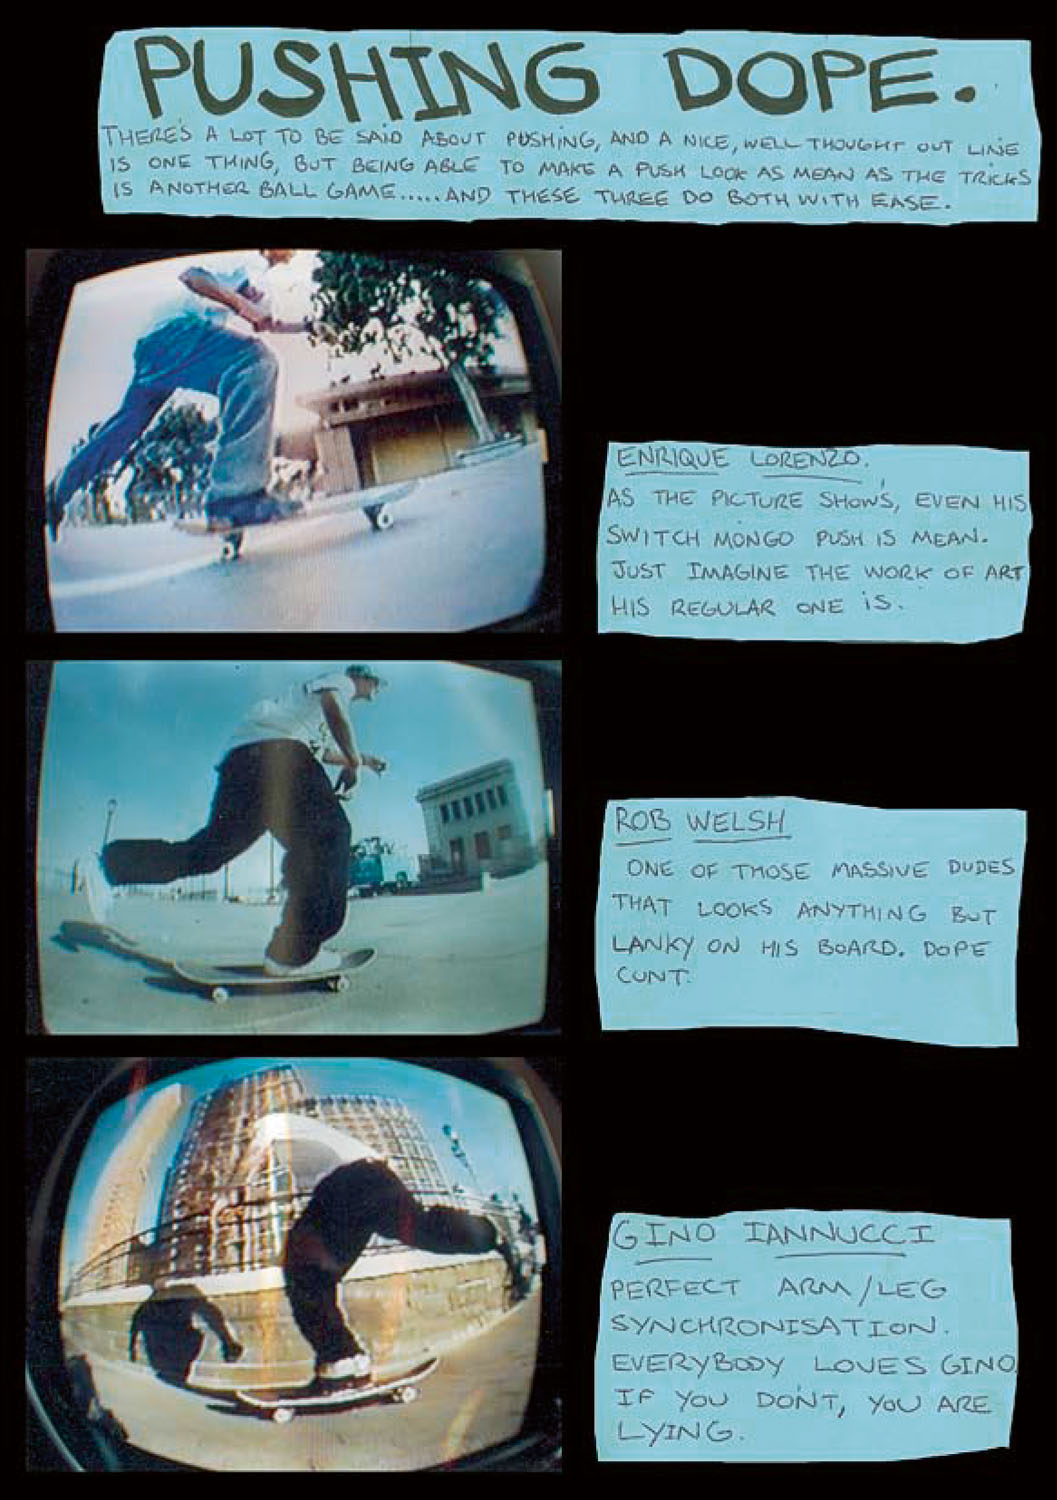 PUSHING DOPE.
THERE'S A LOT TO BE SAID ABOUT PUSHING, AND A NICE, WELL THOUGHT OUT LINE
IS ONE THING, BUT BEING ABLE TO MAKE A PUSH LOOK AS MEAN AS THE TRICKS
IS ANOTHER BALL GAME.....AND THESE THREE DO BOTH WITH EASE.
ENRIQUE LORENZO.
AS THE PICTURE SHOWS, EVEN HIS
SWITCH MONGO PUSH IS MEAN.
JUST IMAGINE THE WORK OF ART
HIS REGULAR ONE IS.
ROB WELSH
ONE OF THOSE MASSIVE DUDES
THAT LOOKS ANYTHING BUT
LANKY ON HIS BOARD. DOPE
CUNT.
GINO IANNUCCI
PERFECT ARM/LEG
SYNCHRONISATION.
EVERYBODY LOVES GINO
IF YOU DON'T, YOU ARE
LYING.